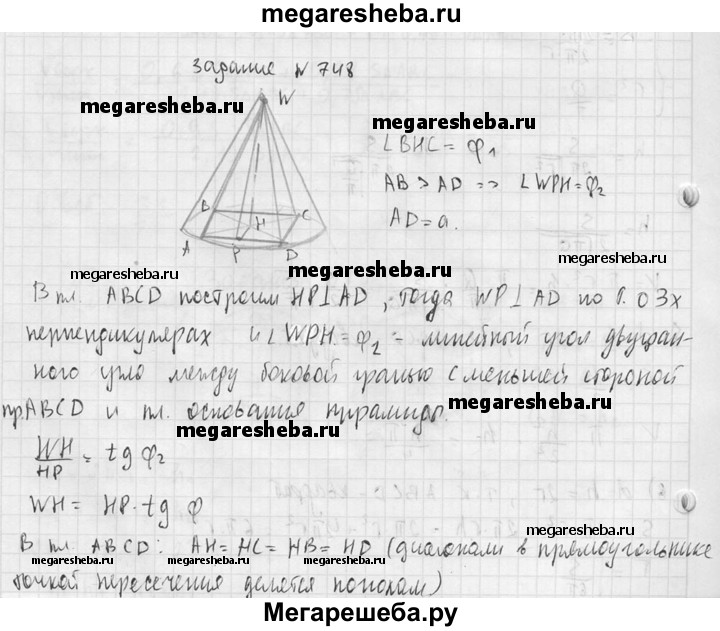 megaresheba.ru
Задание N 748
megaresheba.ru
megaresheba.ru
W
∠BHC = φ₁
AB > AD => ∠WPH = φ₂
AD = a.
B
C
H
A
P
D
megaresheba.ru
megaresheba.ru
В пл. ABCD построим HP⊥AD, тогда WP⊥AD по т. о 3х
перпендикулярах и ∠WPH = φ₂ - линейный угол двугран-
ного угла между боковой гранью с меньшей стороной
пр. ABCD и пл. основания пирамиды.
megaresheba.ru
megaresheba.ru
WH/HP = tg φ₂
WH = HP·tg φ
megaresheba.ru
В пл. ABCD: AH = HC = HB = HD (диагонали в прямоугольнике
megaresheba.ru megaresheba.ru megaresheba.ru
точкой пересечения делятся пополам)
Мегарешеба.ру